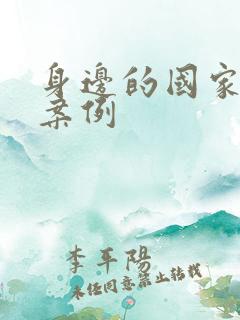 身邊的國家
案例
李平陽
未經同意禁止轉載